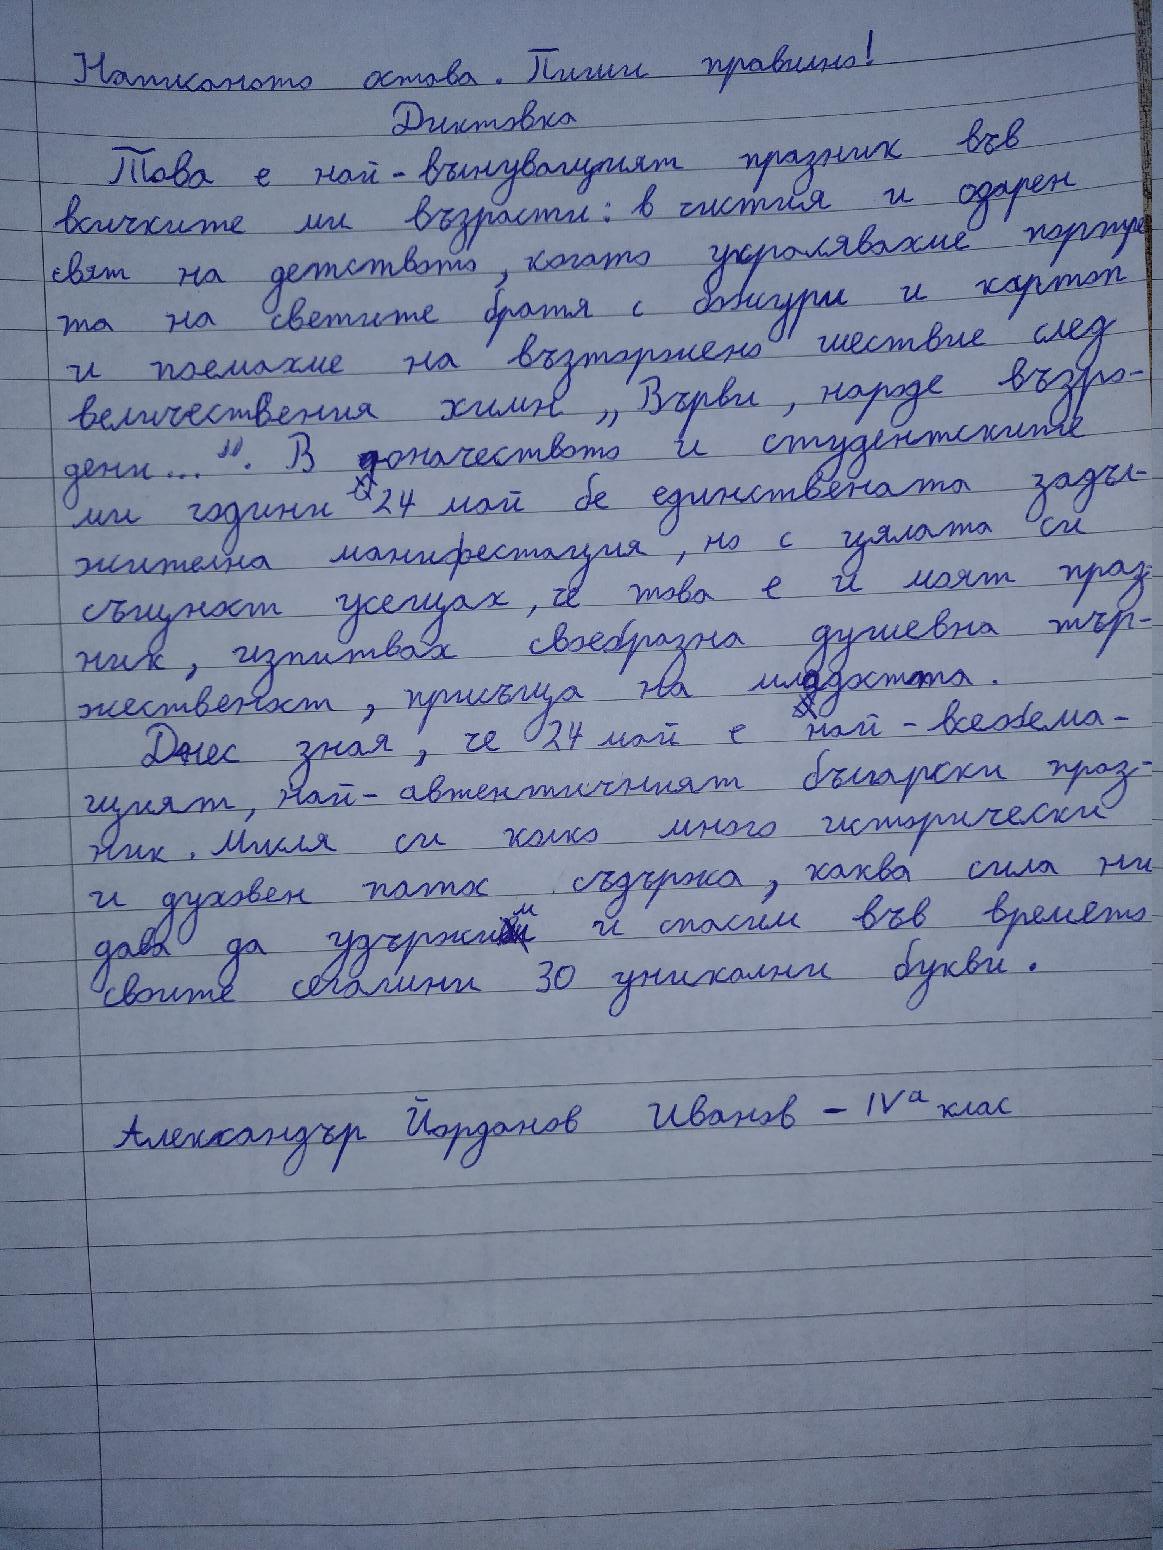 Написаното остава. Пиши правилно!
Диктовка
Това е най-вълнуващият празник във
всичките ми възрасти: в чистия и озарен
свят на детството, когато украсявахме портре
та на светите братя с божури и картоп
и поемахме на възторжено шествие след
величествения химн „Върви, народе възро-
дени...". В юначеството и студентските
ми години 24 май бе единствената задъл-
жителна манифестация, но с цялата си
същност усещах, че това е и моят праз-
ник, изпитвах своебразна душевна тър-
жественост, присъща на младостта.
Днес зная, че 24 май е най-всеобема-
щият, най-автентичният български праз-
ник. Мисля си колко много исторически
и духовен патос съдържа, каква сила ни
дава да удържим и спасим във времето
своите сегашни 30 уникални букви.
Александър Йорданов Иванов - IVа клас